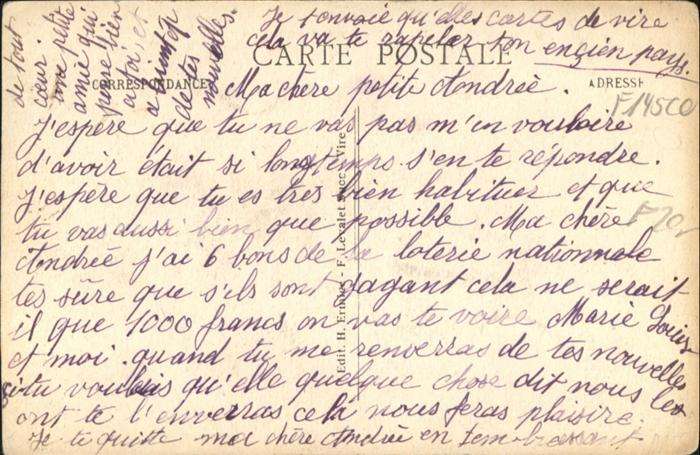 Je t'envoie qu'elles cartes de vire
cela va te rapeler ton ençien pays.
CARTE POSTALE
CORRESPONDANCE
ADRESSE
Ma chère petite Andrée.
J'espère que tu ne vas pas m'en vouloire
d'avoir était si longtemps s'en te répondre.
J'espère que tu es très bien habituer et que
tu vas aussi bien que possible. Ma chère
Andrée j'ai 6 bons de la loterie nationnale
tes sûre que s'ils sont gagant cela ne serait
il que 1000 francs on vas te voire Marie Louise
et moi. quand tu me renverras de tes nouvelles
si tu voulais qu'elle quelque chose dit nous les
ont te l'enverras cela nous feras plaisire
Je te quitte ma chère Andrée en tembrassant
de tout
cœur.
ma petite
amie qui
pense bien
a toi et
de tes
nouvelles.
F145CO
Edit. H. Ermice - F. Levalet Succ., Vire